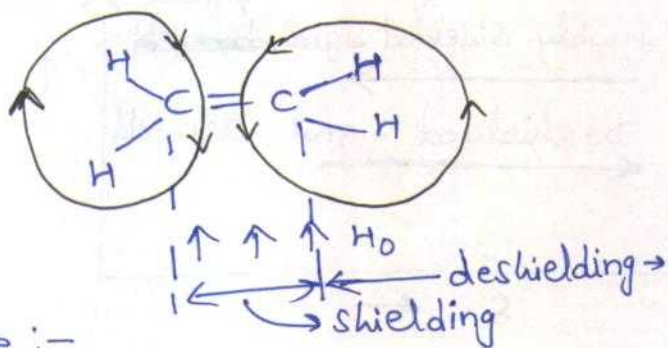 H H
C = C
H H
↑ ↑ ↑ H0
deshielding →
shielding